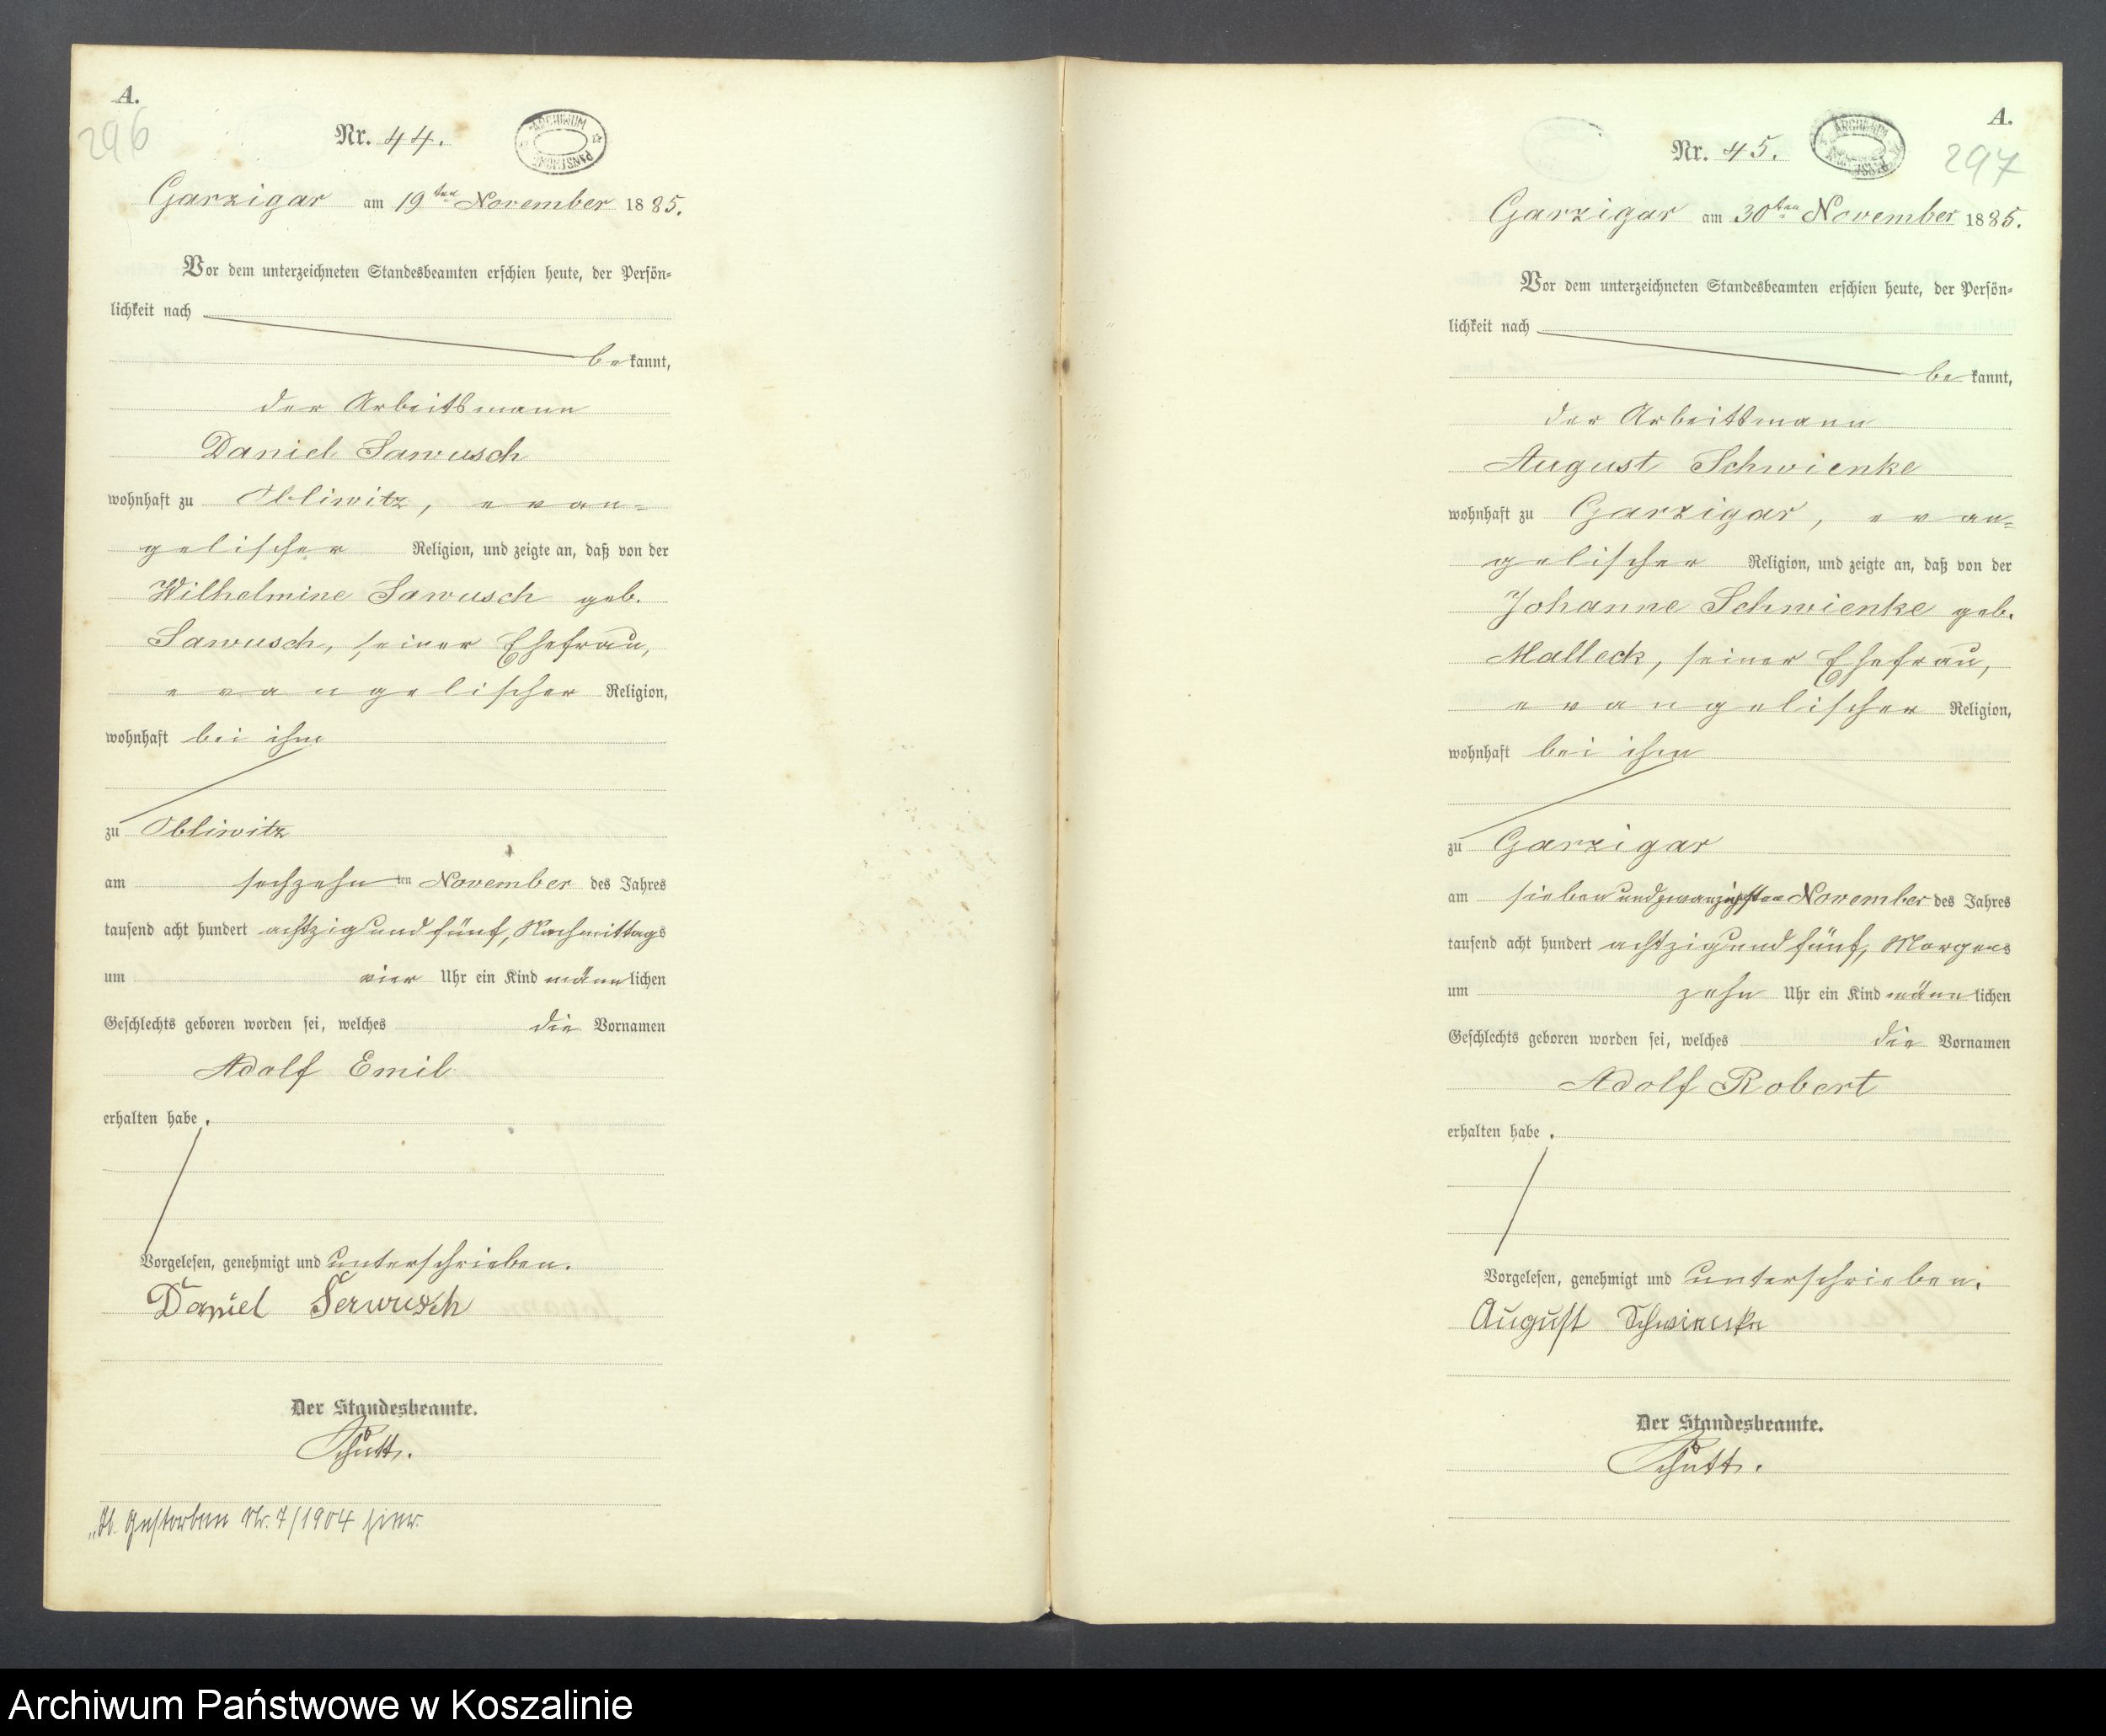 A.
296
Nr. 44.
ARCHIWUM
Garzigar am 19ten November 1885.
Vor dem unterzeichneten Standesbeamten erschien heute, der Persön=
lichkeit nach
bekannt,
der Arbeitsmann
Daniel Sawusch
wohnhaft zu Obliwitz, evan=
gelischer Religion, und zeigte an, daß von der
Wilhelmine Sawusch geb.
Sawusch, seiner Ehefrau,
evangelischer Religion,
wohnhaft bei ihm
zu Obliwitz
am sechzehnten November des Jahres
tausend acht hundert achtzig und fünf, Nachmittags
um vier Uhr ein Kind männlichen
Geschlechts geboren worden sei, welches die Vornamen
Adolf Emil
erhalten habe.
Vorgelesen, genehmigt und unterschrieben.
Daniel Serwusch
Der Standesbeamte.
Schütt.
Gestorben Nr. 7/1904 hier.
A.
Nr. 45.
297
Garzigar am 30ten November 1885.
Vor dem unterzeichneten Standesbeamten erschien heute, der Persön=
lichkeit nach
bekannt,
der Arbeitsmann
August Schwienke
wohnhaft zu Garzigar, evan=
gelischer Religion, und zeigte an, daß von der
Johanne Schwienke geb.
Malleck, seiner Ehefrau,
evangelischer Religion,
wohnhaft bei ihm
zu Garzigar
am siebenundzwanzigsten November des Jahres
tausend acht hundert achtzig und fünf, Morgens
um zehn Uhr ein Kind männlichen
Geschlechts geboren worden sei, welches die Vornamen
Adolf Robert
erhalten habe.
Vorgelesen, genehmigt und unterschrieben.
August
Der Standesbeamte.
Schütt.
Archiwum Państwowe w Koszalinie